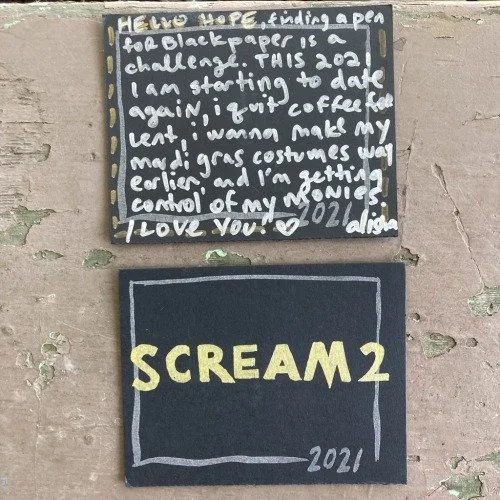 HELLO HOPE, finding a pen
foR Black paper is a
challenge. THIS 2021
I am starting to date
again, i quit coffee for
Lent, i wanna make my
mardi gras costumes way
earlier, and I'm getting
control of my MONIES
2021
I LOVE YOU ♡ alisha
SCREAM 2
2021